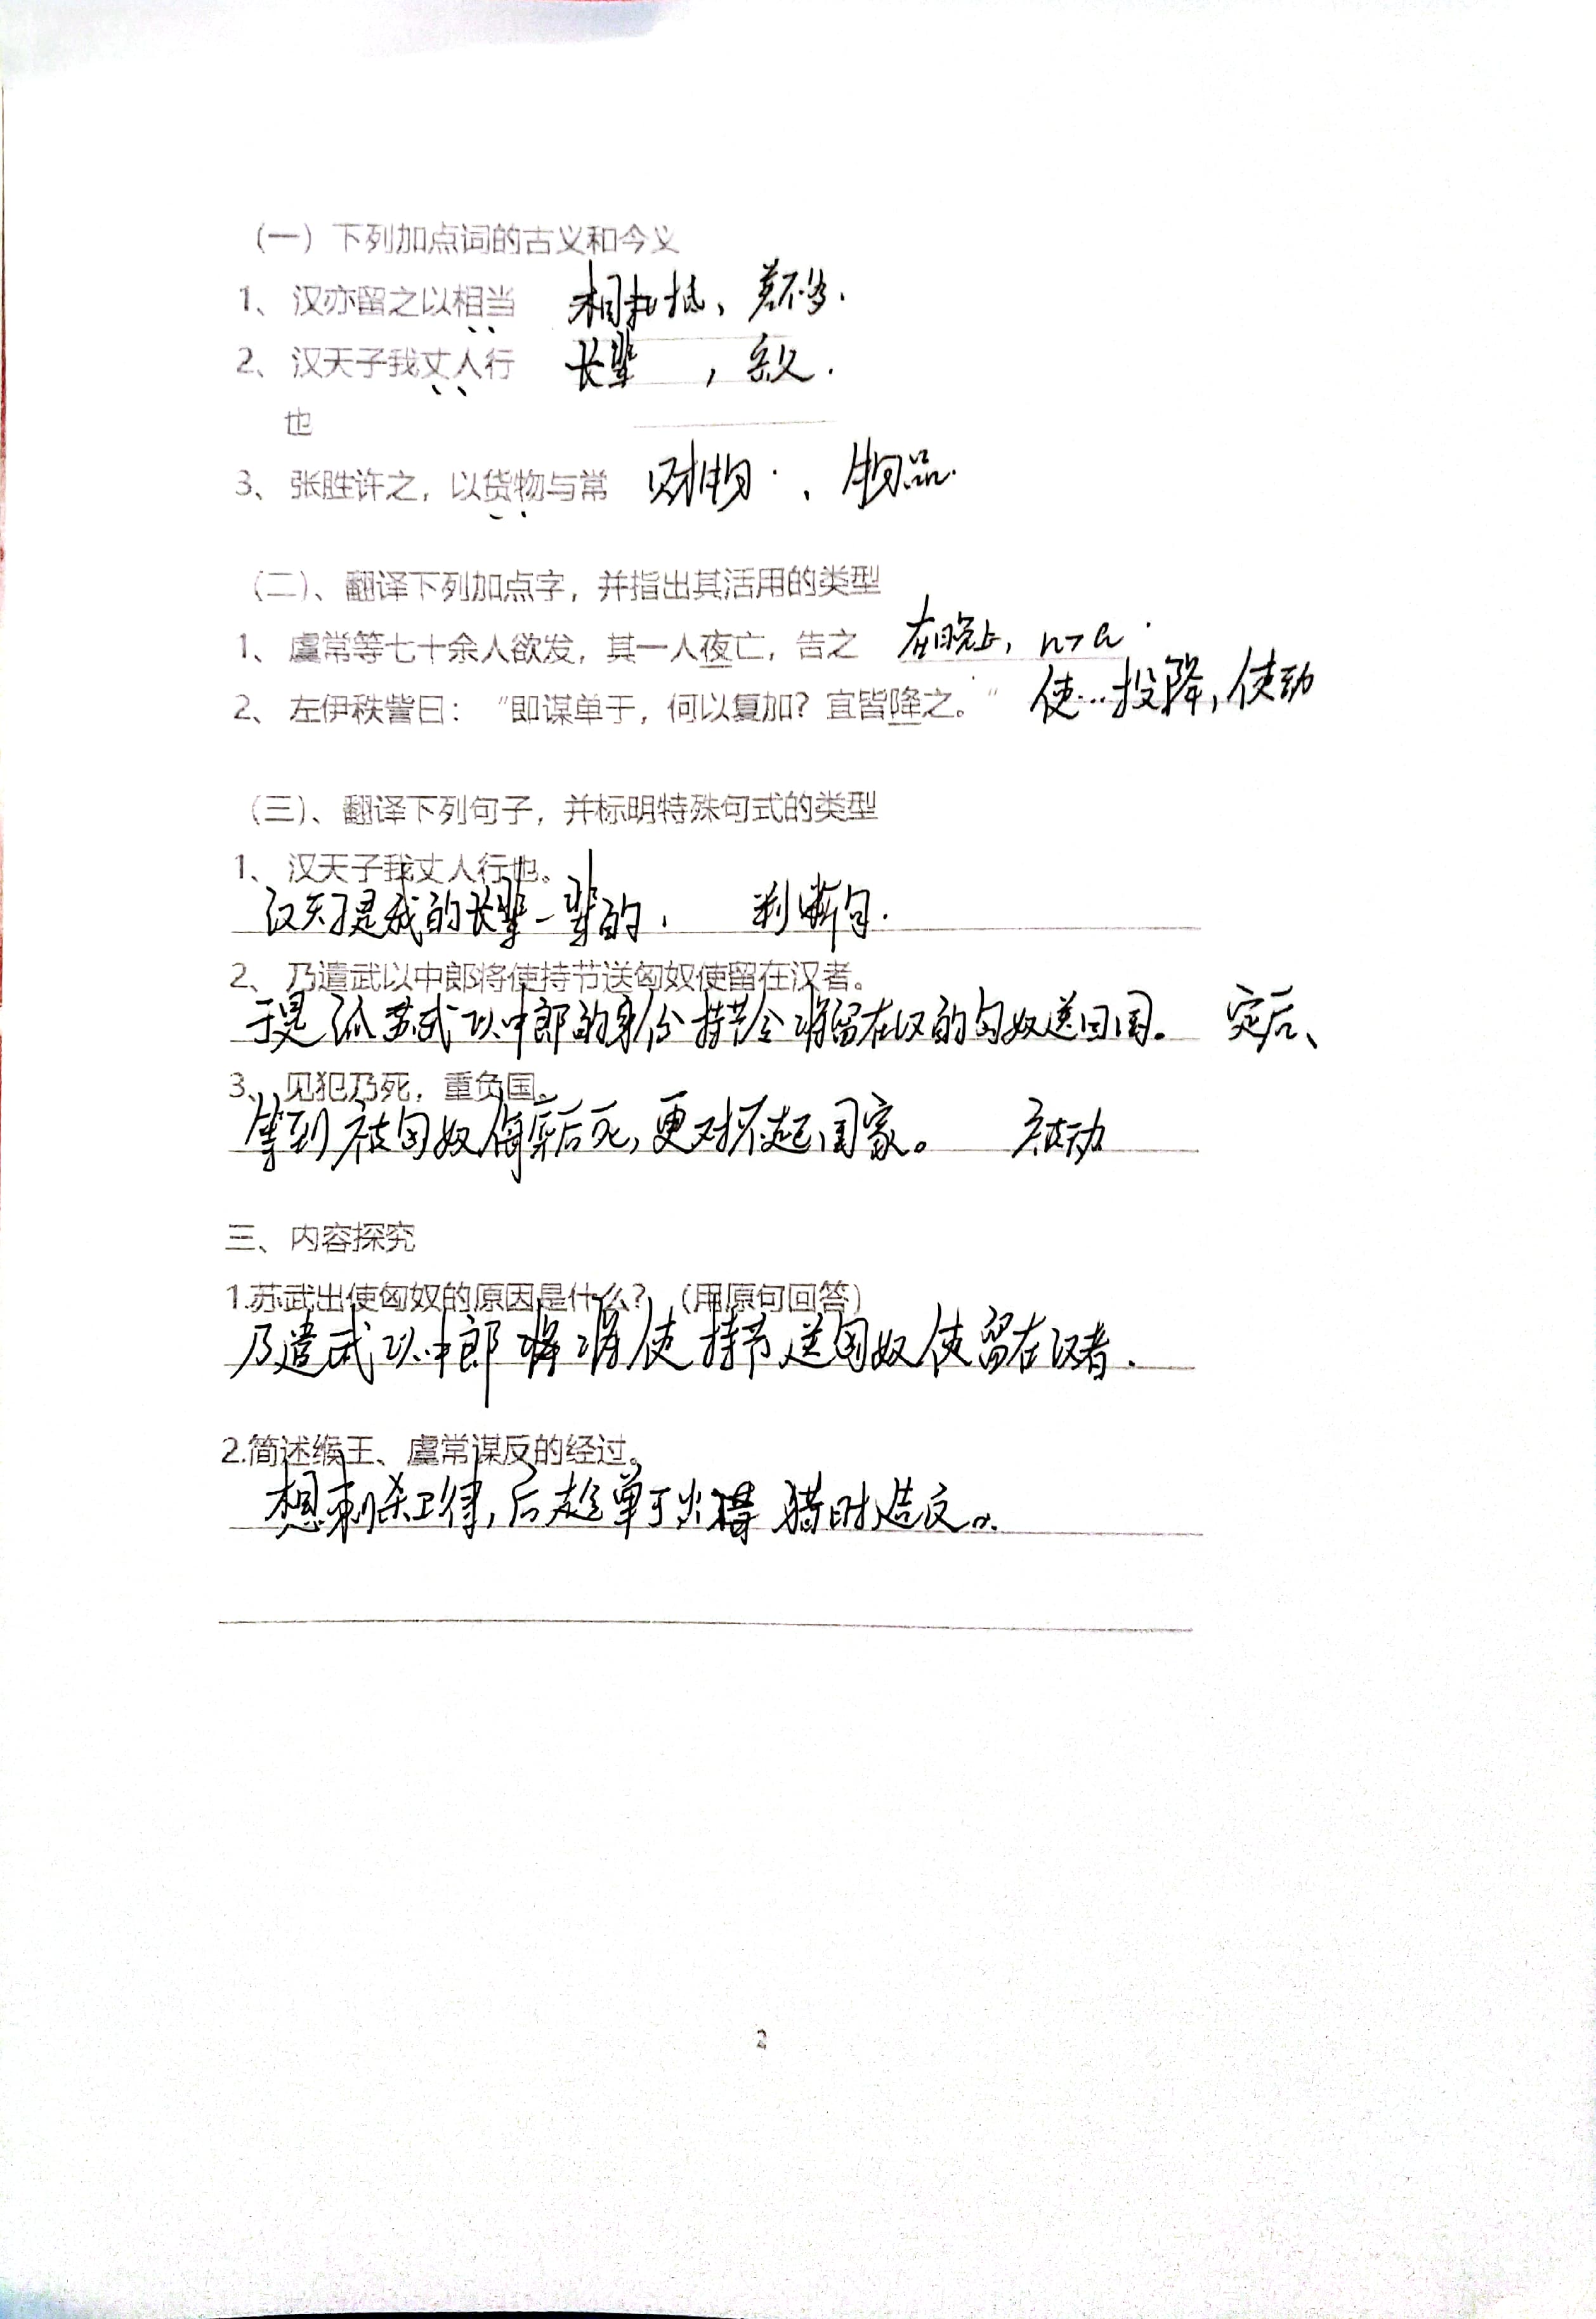 （一）下列加点词的古义和今义
1、汉亦留之以相当 相抵，差不多.
2、汉天子我丈人行 长辈，岳父.
也
3、张胜许之，以货物与常 财物、物品.
（二）、翻译下列加点字，并指出其活用的类型
1、虞常等七十余人欲发，其一人夜亡，告之 在晚上，n→a
2、左伊秩訾曰：“即谋单于，何以复加？宜皆降之。” 使…投降，使动
（三）、翻译下列句子，并标明特殊句式的类型
1、汉天子我丈人行也。
汉天子是我的长辈一辈的. 判断句.
2、乃遣武以中郎将使持节送匈奴使留在汉者。
于是派苏武以中郎的身份持节令将留在汉的匈奴送回国。 定后、
3、见犯乃死，重负国。
等到被匈奴侮辱后死，更对不起国家。 被动
三、内容探究
1.苏武出使匈奴的原因是什么？（用原句回答）
乃遣武以中郎将使持节送匈奴使留在汉者.
2.简述缑王、虞常谋反的经过。
想刺杀卫律，后趁单于猎时造反。